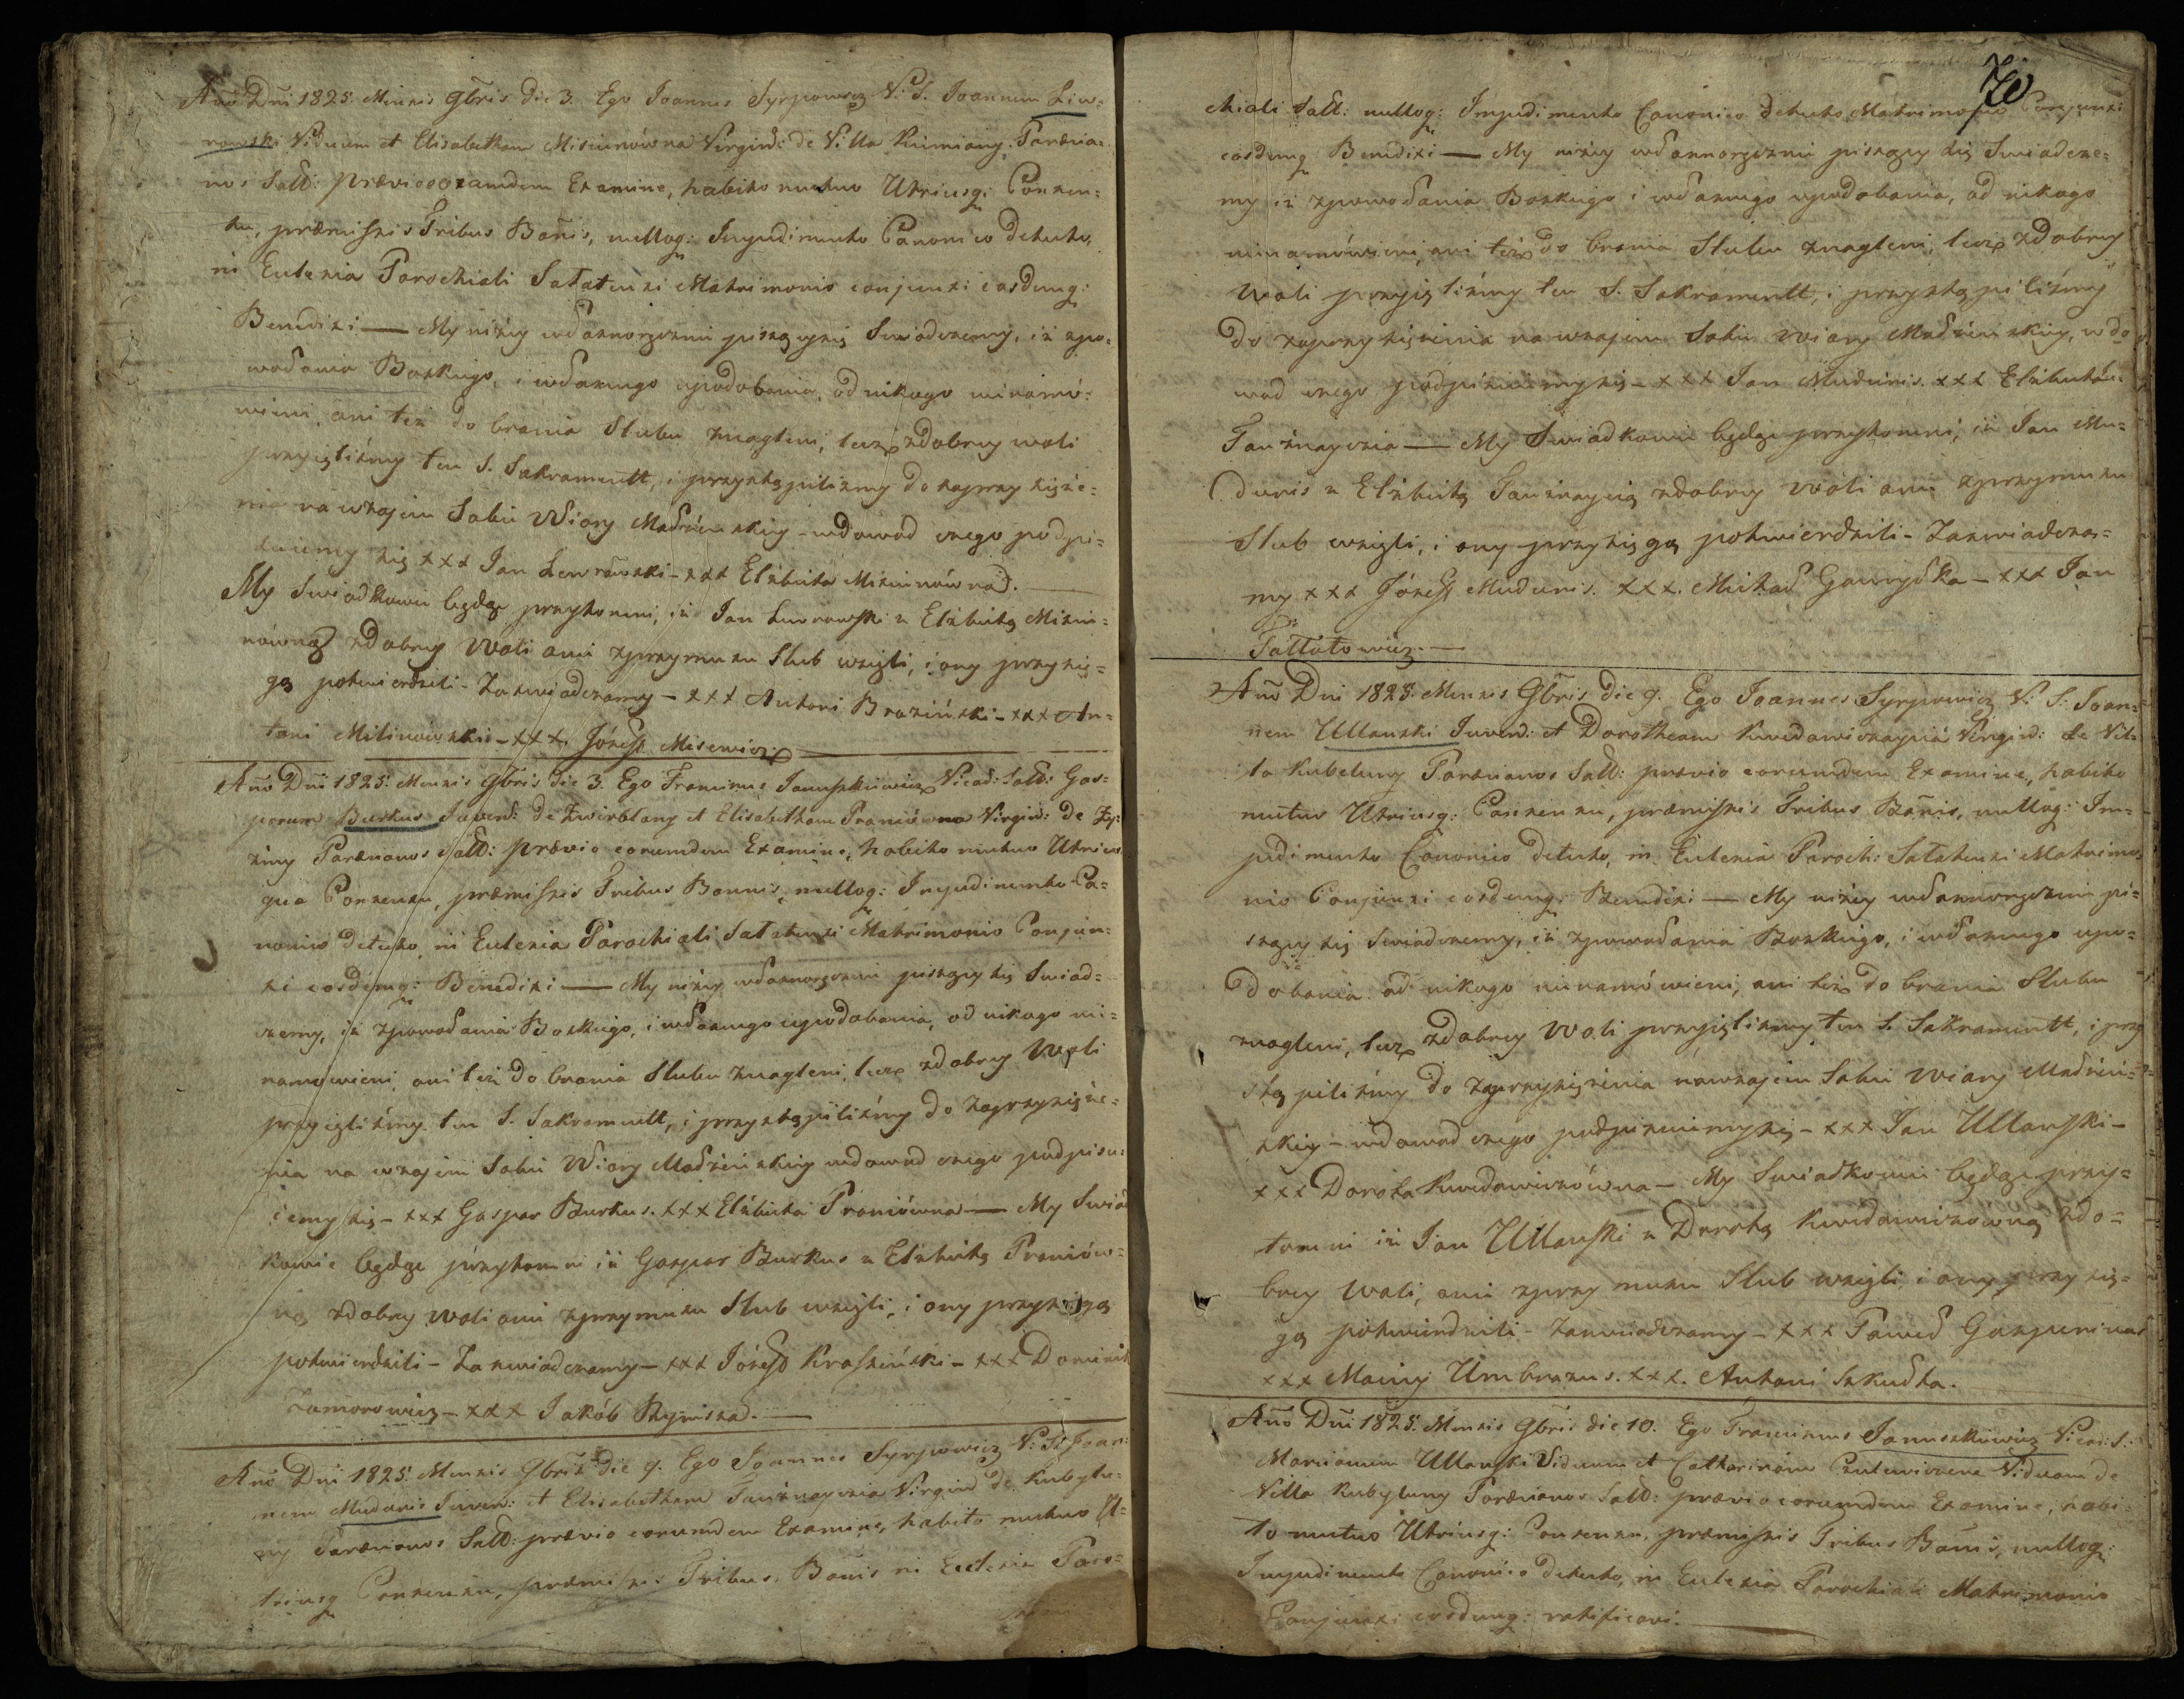 Año Dni 1825. Mensis 9bris Die 3. Ego Joannes Syrpowicz V. S. Joannem Lew=
rowski Viduum et Elisabetham Misiunówna Virginē: de Villa Kurmiany Paræcia=
nos Sałł: prævio eorumdem Examine, habito mutuo Utriusq: Consen=
su, præmissis Tribus Banis, nulloq: Impedimento Canonico detecto,
in Eclesia Parochiali Sałatensi Matrimonio conjunxi eosdemq:
Benedixi — My niżey własnoręcznie piszący się Swiadczemy, iż zpo=
wołania Boskiego, i własnego upodobania, od nikogo nienamó=
wieni, ani też do brania Slubu znagleni, lecz zdobrey woli
przyięliśmy ten S. Sakramentt, i przystąpiliśmy do zaprzysięże=
nia nawzajem Sobie Wiary Małżeńskiey – wdowod czego podpi=
suiemy się xxx Jan Lewrowski – xxx Elżbieta Misiunówna. —
My Swiadkowie będąc przytomni, iż Jan Lewrowski z Elżbietą Misiu=
nówną zdobrey Woli ani zprzymusu Slub wzięli, i ony przysię=
gą potwierdzili – Zaswiadczamy – xxx Antoni Braziński – xxx An=
toni Milinówski – xxx. Józeff Misewicz —
Año Dni 1825. Mensis 9bris Die 3. Ego Franciscus Januszkiewicz Vicař: Sałł: Gas=
parum Burkus Juvenē: de Zwirblany et Elisabetham Praniówna Virginē: De
Paræcianos Sałł: prævio eorumdem Examine, habito mutuo Utrius
que Consensu, præmissis Tribus Bannis, nulloq: Impedimento Ca=
nonico detecto, in Eclesia Parochiali Sałatensi Matrimonio Conjun=
xi eosdemq: Benedixi — My niżey własnoręcznie piszący się Swiad=
czemy, iż zpowołania Boskiego, i własnego upodobania, od nikogo nie=
namowieni, ani też do brania Slubu znagleni, lecz zdobrey Woli
przyięliśmy ten S. Sakramentt, i przystąpiliśmy do zaprzysięże=
nia na wzajem Sobie Wiary Małżeńskiey wdowod czego podpisu=
iemy się – xxx Gaspar Burkus. xxx Elżbieta Praniówna — My Swiad
kowie będąc przytomni iż Gaspar Burkus z Elżbietą Praniów=
ną zdobrey woli ani zprzymusu Slub wzięli, i ony przysięgą
potwierdzili – Zaswiadczamy – xxx Józeff Krasziński – xxx Dominik
Zamorowicz – xxx Jakób Rymsza. —
Año Dni 1825. Mensis 9bris Die 9. Ego Joannes Syrpowicz V: S: Joan=
nem Muduris Juven: et Elisabetham Virginē De Kubylu=
ny Paræcianos Sałł: prævio eorumdem Examine, habito mutuo U=
triusq Consensu, præmissis: Tribus. Banis in Eclesia Paro=
70
chiali Sałł: nulloq: Impedimento Canonico detecto Matrimonio Conjunxi
eosdemq Benedixi — My niżey własnoręcznie piszący się Swiadcze=
my iż zpowołania Boskiego i własnego upodobania, od nikogo
nienamówieni, ani też do brania Slubu znagleni, lecz zdobrey
Woli przyięliśmy ten S. Sakramentt, i przystąpiliśmy
do zaprzysiężenia nawzajem Sobie Wiary Małżeńskiey, wdo
wod czego podpisuiemysię – xxx Jan Muduris. xxx Elżbieta
— My Swiadkowie będąc przytomni, iż Jan Mu=
duris z Elżbietą zdobrey Woli ani zprzymusu
Slub wzięli, i ony przysięgą potwierdzili – Zaswiadcza=
my xxx Józeff Muduris. xxx. Michał Gawryłka – xxx Jan
Tałłatowicz. —
Año Dni 1825. Mensis 9bris Die 9. Ego Joannes Syrpowicz V: S: Joan=
nem Ullanski Juvenē: et Dorotheam Virginē: de Vil=
la Kubeluny Paræcianos Sałł: prævio eorumdem Examine, habito
mutuo Utriusq: Consensu, præmissis Tribus Banis, nulloq: Im=
pedimento Canonico detecto, in Eclesia Paroch: Sałatensi Matrimo=
nio Conjunxi eosdemq: Benedixi — My niżey własnoręcznie pi=
szący się Swiadczemy, iż zpowołania Boskiego, i własnego upo=
dobania od nikogo nienamówieni, ani też do brania Slubu
znagleni, lecz zdobrey Woli przyięliśmy ten S. Sakramentt, i przy
stąpiliśmy do zaprzysiężenia nawzajem Sobie Wiary Małżeń=
skiey – wdowod czego podpisuiemysię – xxx Jan Ullanski –
xxx Dorota Kwedawiczówna – My Swiadkowie będąc przy=
tomni iż Jan Ullanski z Dorotą Kwedawiczowną zdo=
brey Woli, ani zprzymusu Slub wzięli i ony przysię=
gą potwierdzili – Zaswiadczamy – xxx Paweł
xxx Maciey Umbrazus. xxx. Antoni Szkudła.
Año Dni 1825. Mensis 9bris die 10. Ego Franciscus Januszkiewicz Vicar: S:
Marcianum Ullanski Viduum et Catharinam Viduam de
Villa Kubyluny Paræcianos Sałł: prævio eorumdem Examine, habi=
to mutuo Utriusq: Consensu, præmissis Tribus Banis, nulloq:
Impedimento Canonico detecto, in Eclesia Parochiali Matrimonio
Conjunxi eosdemq: ratificavi. —